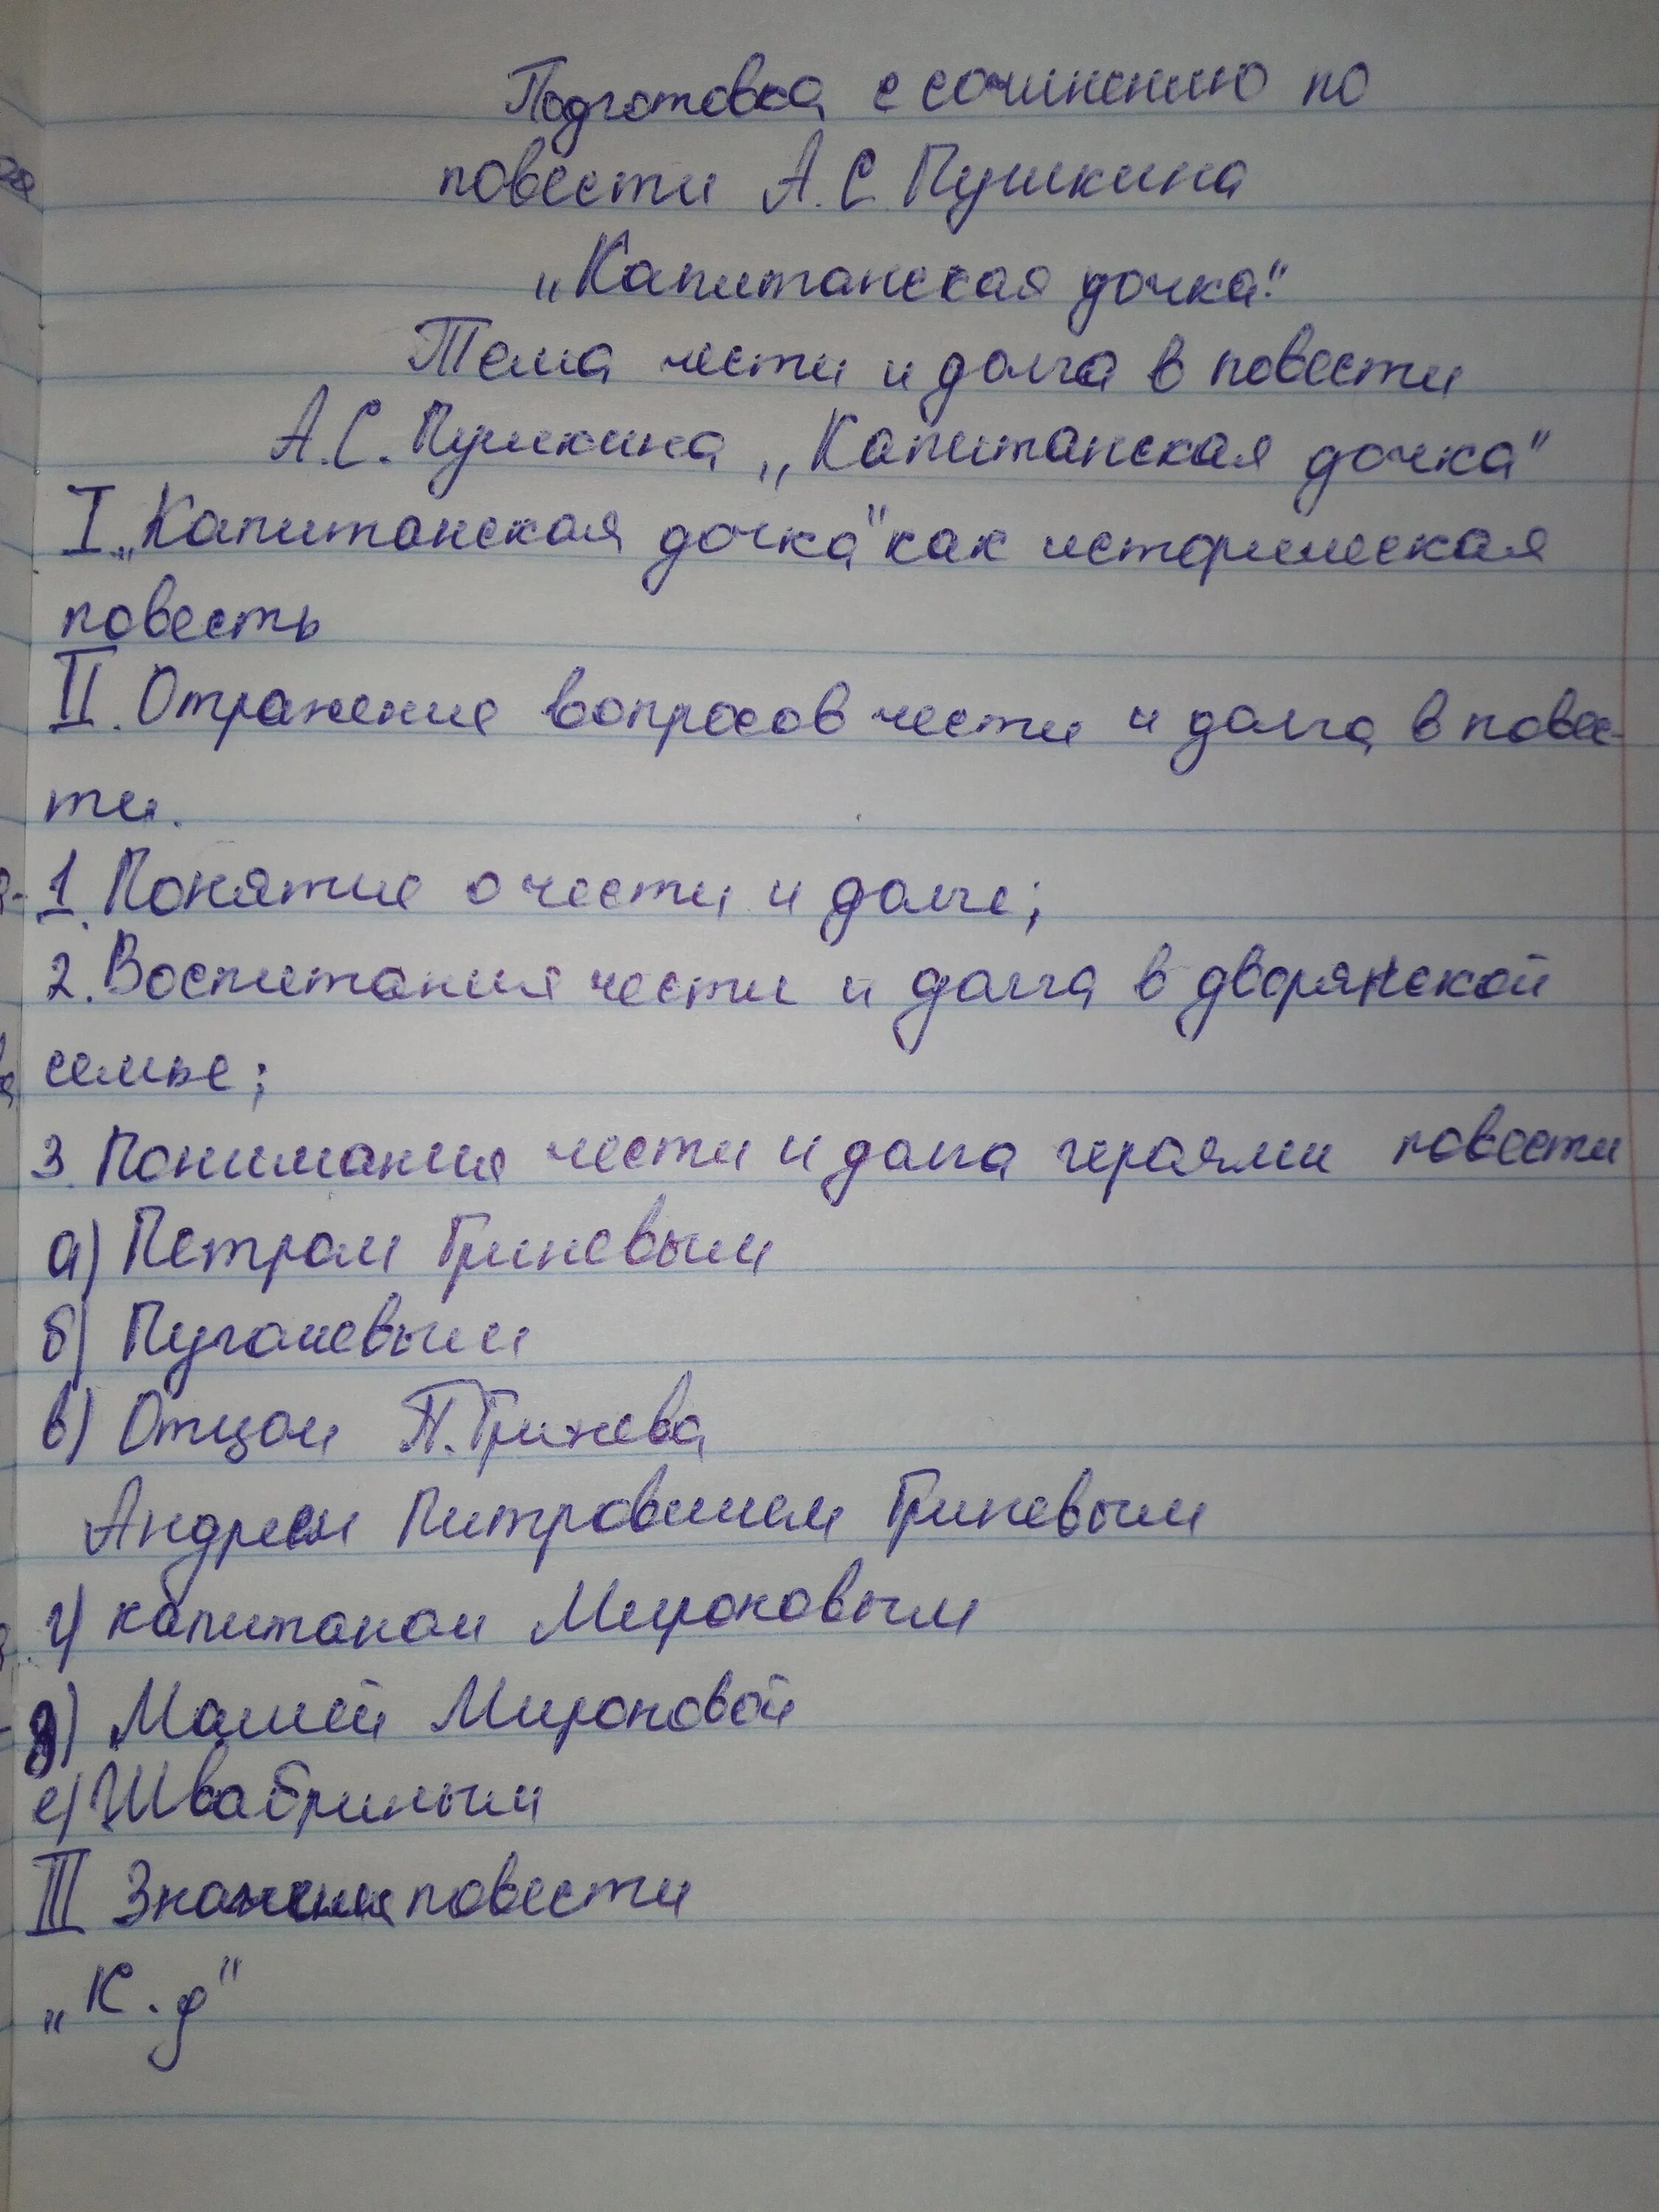 Подготовка с сочинению по
повести А.С. Пушкина
„Капитанская дочка".
Тема чести и долга в повести
А.С. Пушкина „Капитанская дочка"
I „Капитанская дочка" как историческая
повесть
II. Отражение вопросов чести и долга в повес-
ти.
1. Понятие о чести и долге;
2. Воспитания чести и долга в дворянской
семье;
3. Понимания чести и долга героями повести
а) Петром Гриневым
б) Пугачевым
в) Отцом П. Гринева
Андреем Питровичем Гриневым
г) капитаном Мироновым
д) Машей Мироновой
е) Швабриным
III Значение повести
„К. д"